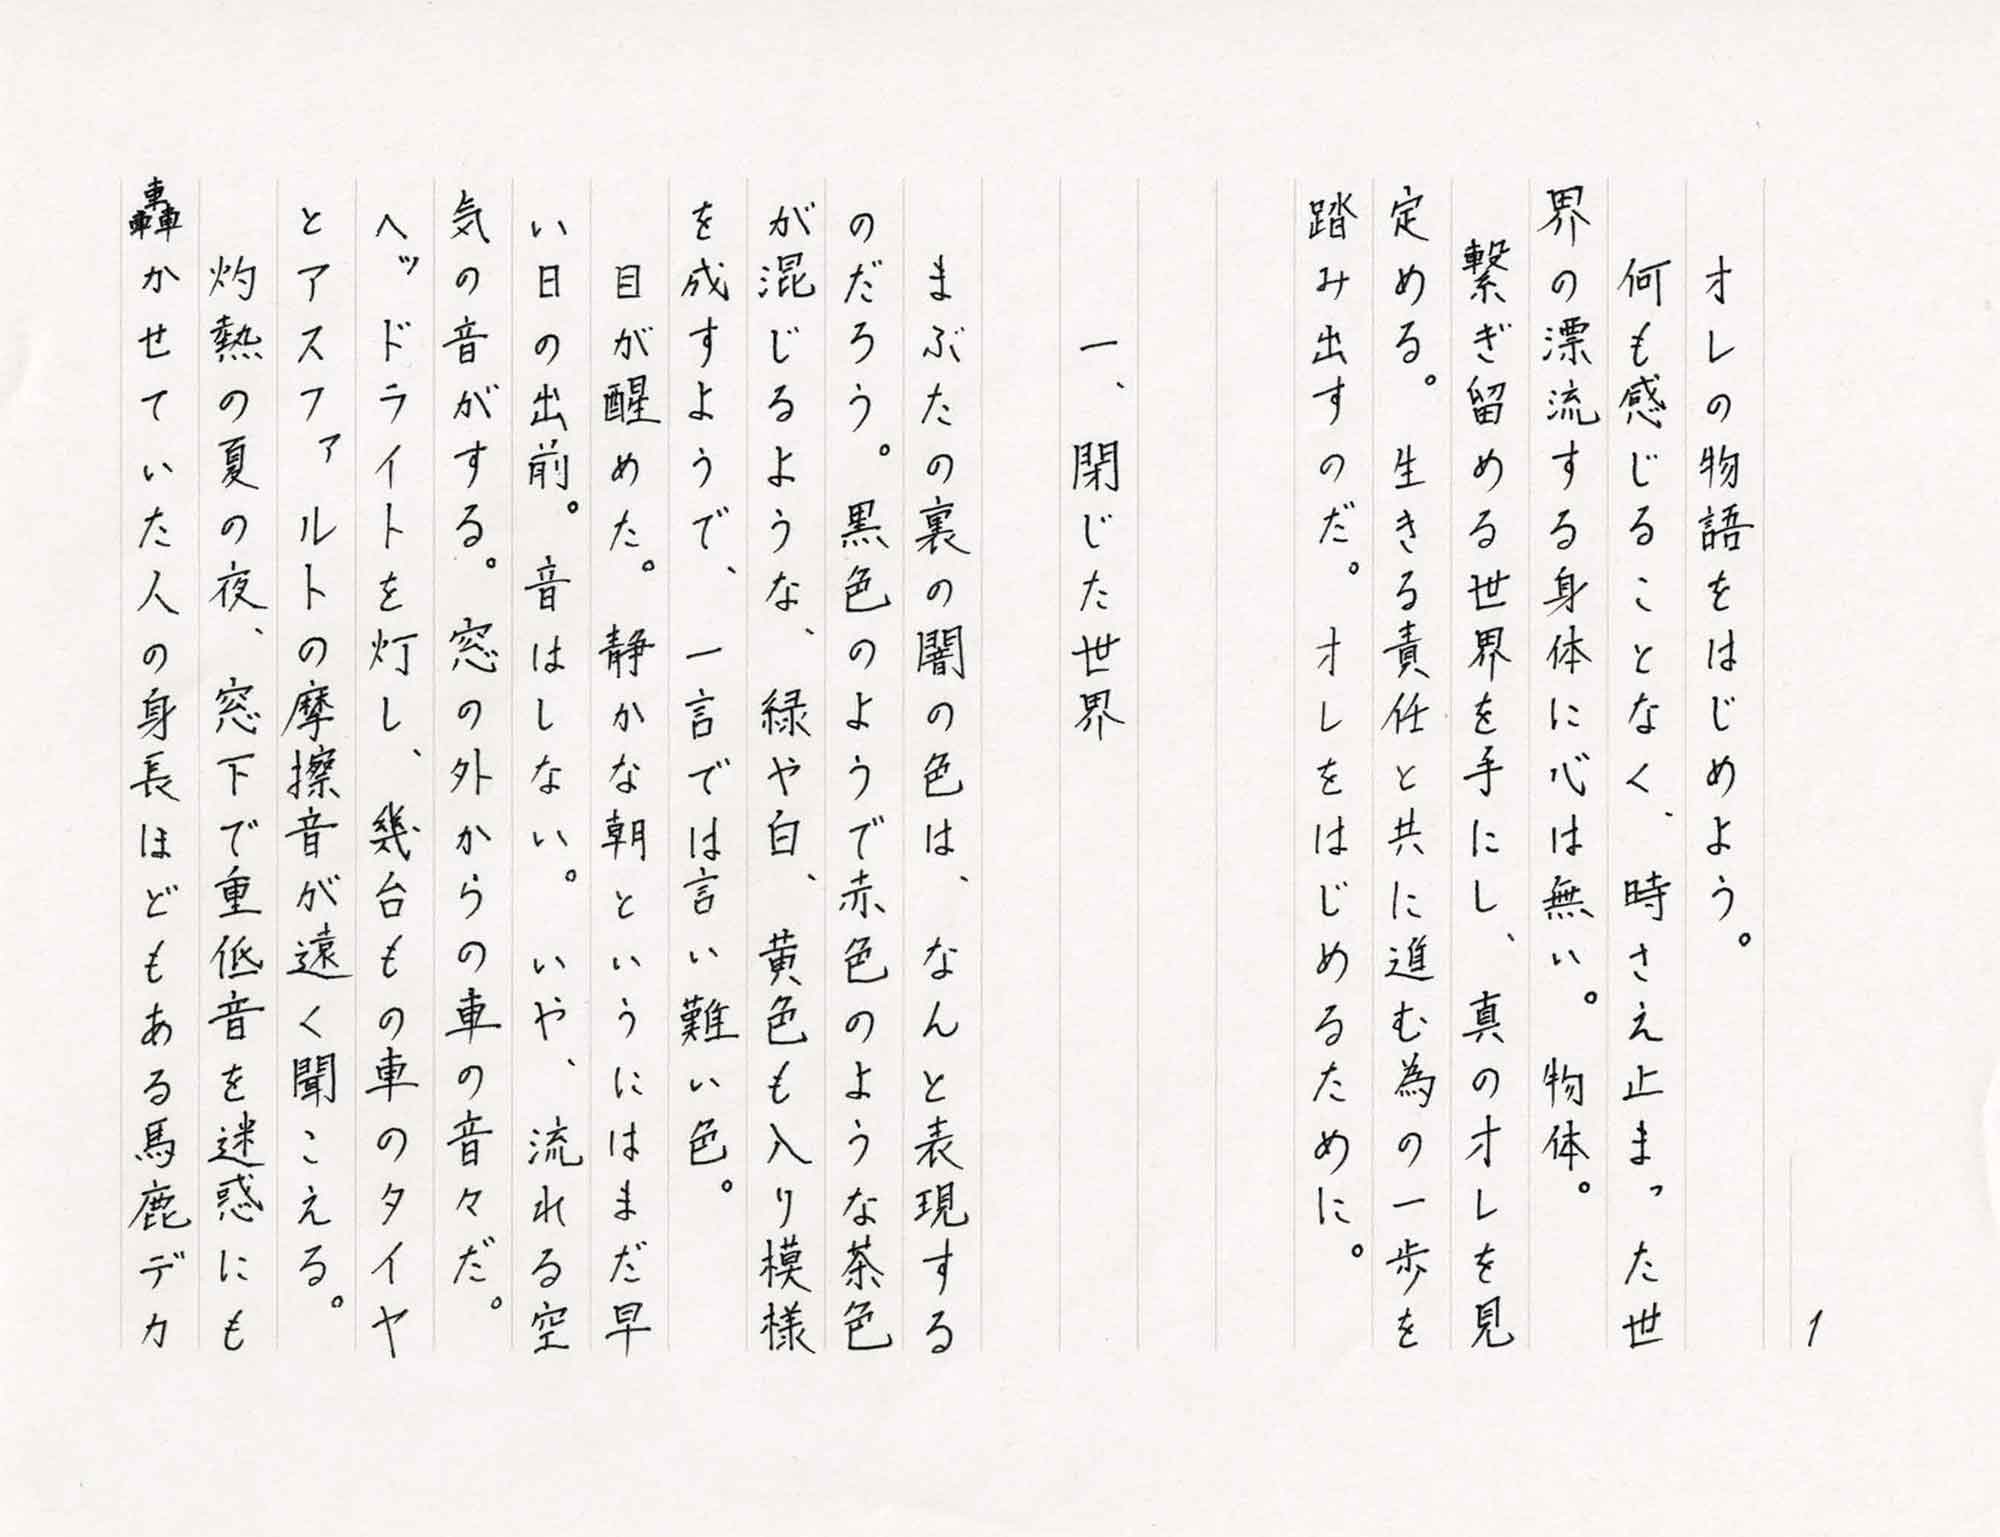 1
オレの物語をはじめよう。
何も感じることなく、時さえ止まった世
界の漂流する身体に心は無い。物体。
繋ぎ留める世界を手にし、真のオレを見
定める。生きる責任と共に進む為の一歩を
踏み出すのだ。オレをはじめるために。
一、閉じた世界
まぶたの裏の闇の色は、なんと表現する
のだろう。黒色のようで赤色のような茶色
が混じるような、緑や白、黄色も入り模様
を成すようで、一言では言い難い色。
目が醒めた。静かな朝というにはまだ早
い日の出前。音はしない。いや、流れる空
気の音がする。窓の外からの車の音々だ。
ヘッドライトを灯し、幾台もの車のタイヤ
とアスファルトの摩擦音が遠く聞こえる。
灼熱の夏の夜、窓下で重低音を迷惑にも
轟かせていた人の身長ほどもある馬鹿デカ